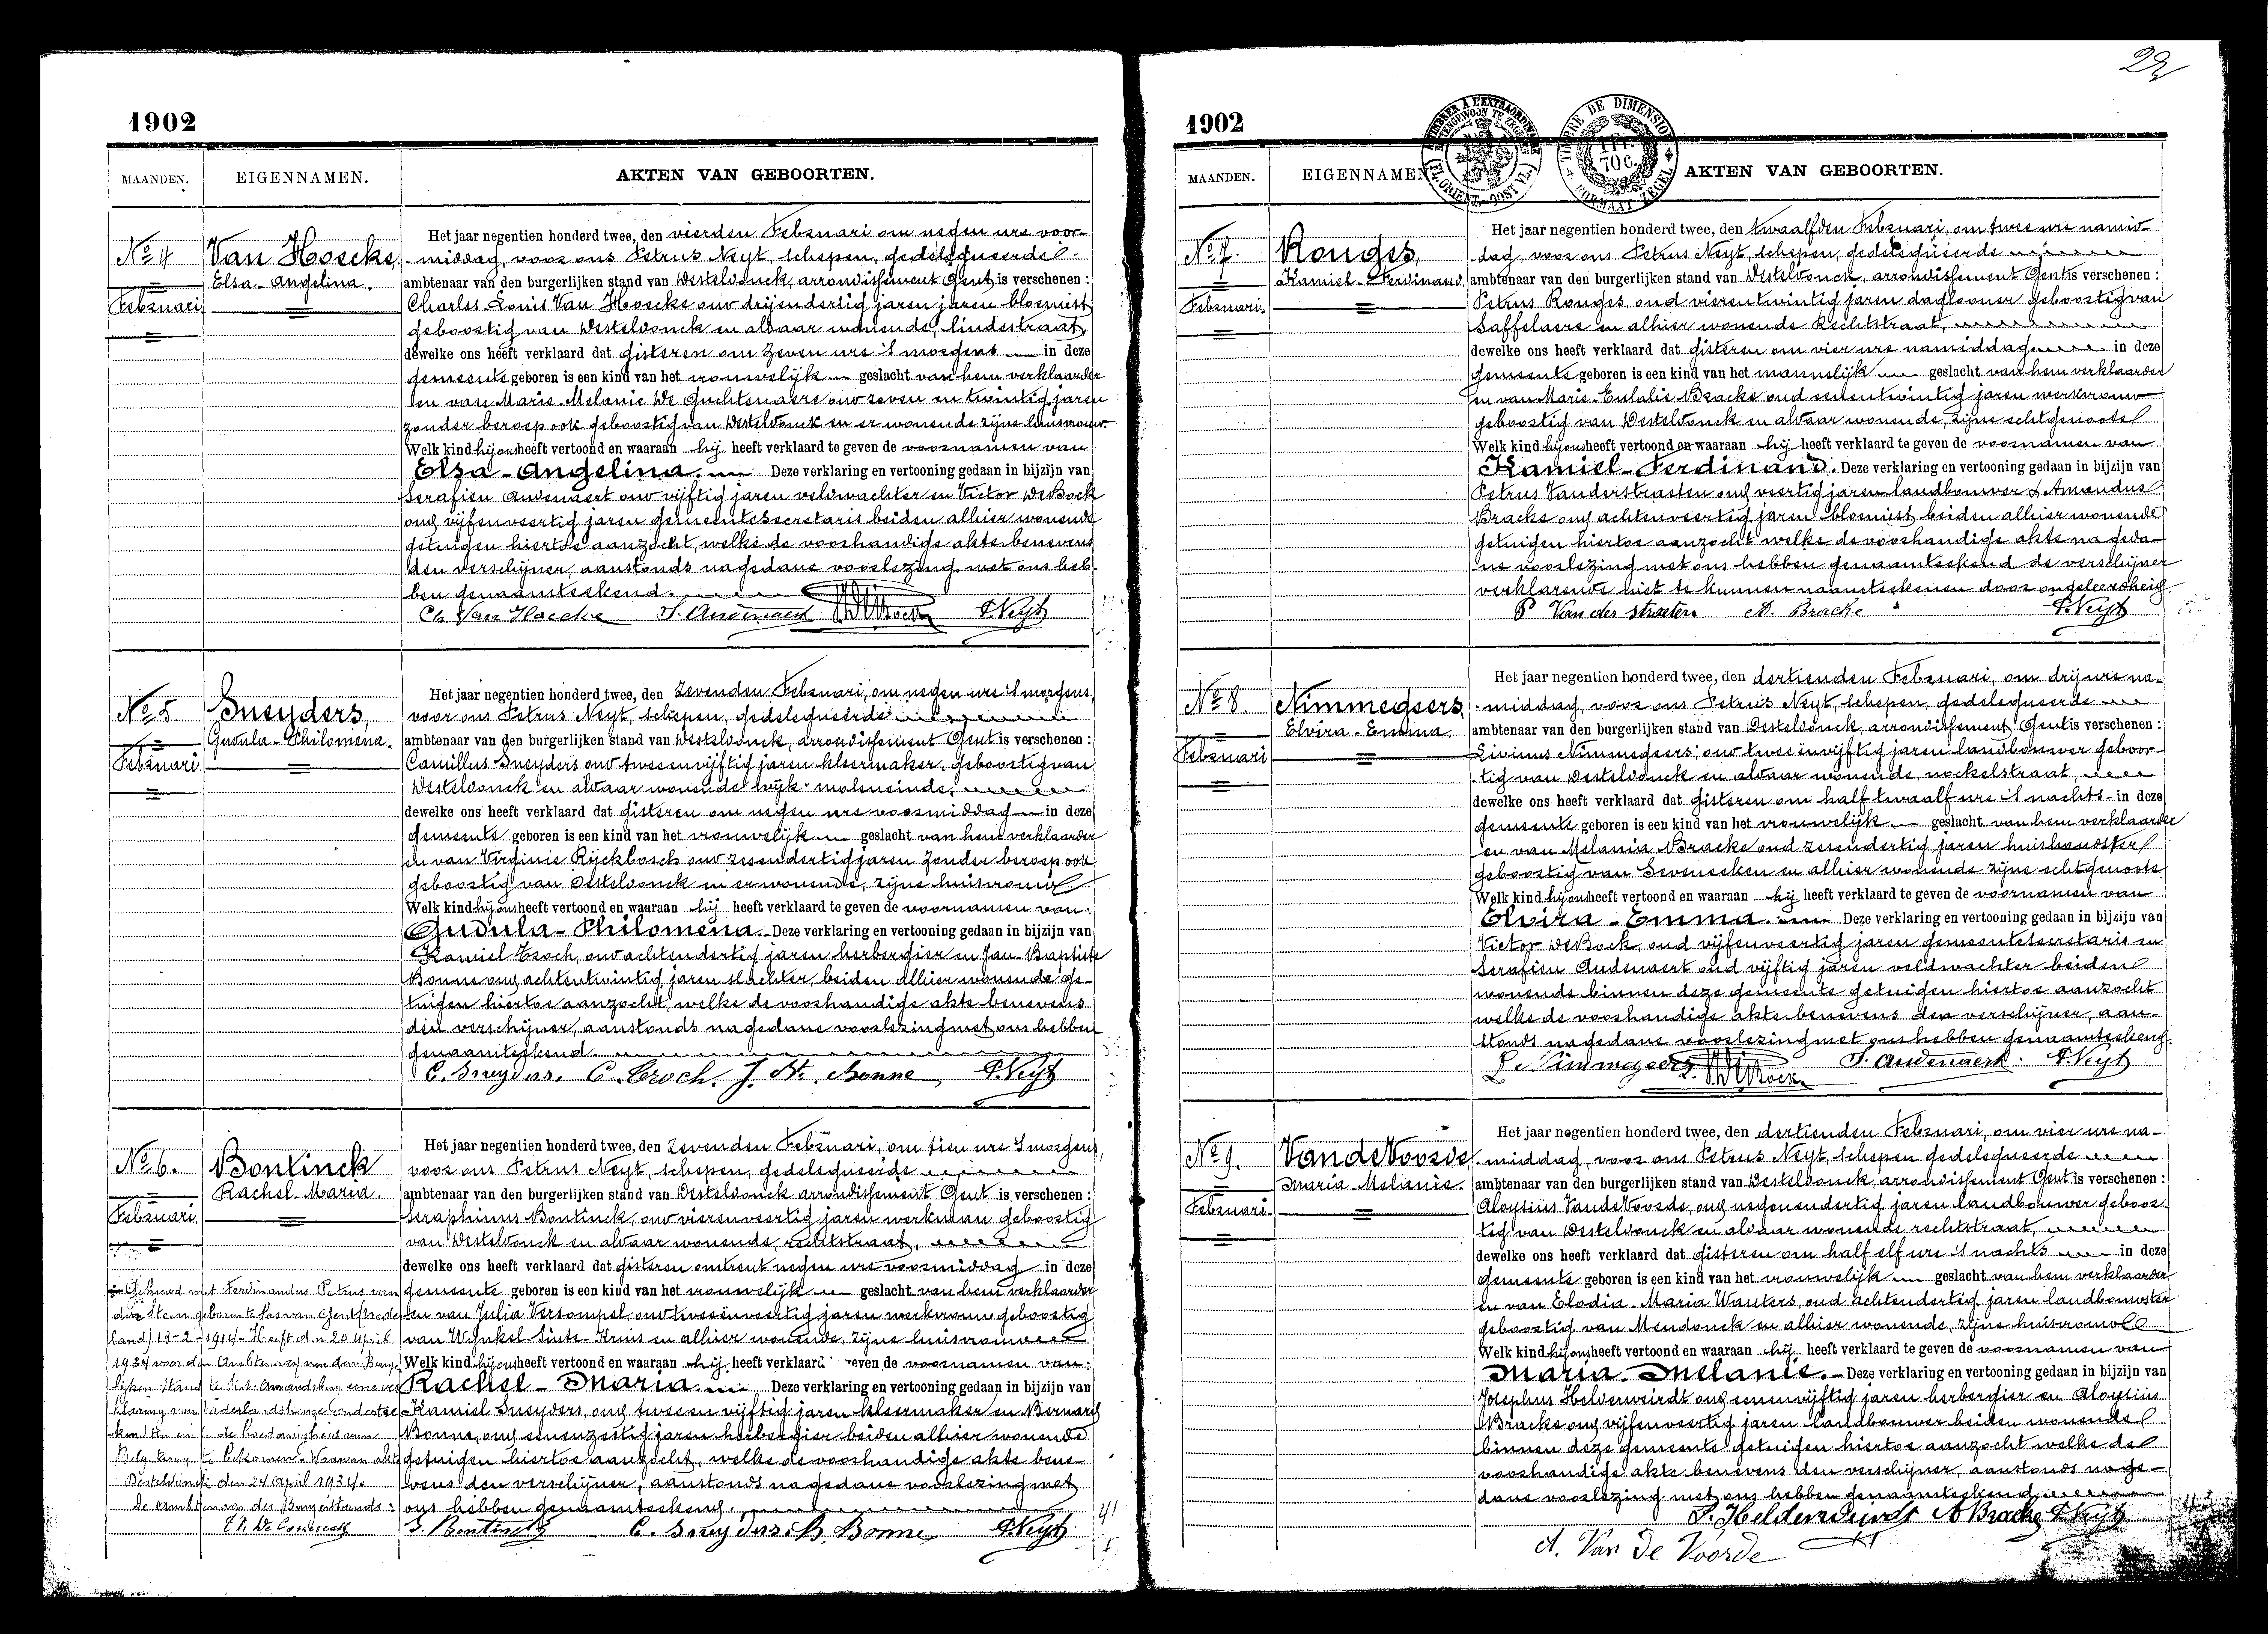 22
1902
MAANDEN.
EIGENNAMEN.
AKTEN VAN GEBOORTEN.
No 4
Februari
Van Hoecke,
Elsa-Angelina.
Het jaar negentien honderd twee, den vierden Februari om negen ure voor-
middag, voor ons Petrus Neyt, schepen, gedelegueerde
ambtenaar van den burgerlijken stand van Desteldonck, arrondissement Gent is verschenen :
Charles Louis Van Hoecke oud drijendertig jaren jaren bloemist
geboortig van Desteldonck en aldaar wonende, lindestraat,
dewelke ons heeft verklaard dat gisteren om zeven ure 's morgens in deze
gemeente geboren is een kind van het vrouwelijk geslacht van hem verklaarder
en van Marie-Melanie De Guchtenaere oud zeven en twintig jaren
zonder beroep ook geboortig van Desteldonck en er wonende zijne huisvrouw
Welk kind hij ons heeft vertoond en waaraan hij heeft verklaard te geven de voornamen van
Elsa-Angelina. Deze verklaring en vertooning gedaan in bijzijn van
Serafien Audenaert oud vijftig jaren veldwachter en Victor De Bock
oud vijfenveertig jaren gemeentesecretaris beiden alhier wonende
getuigen hiertoe aanzocht, welke de voorhandige akte benevens
den verschijner, aanstonds na gedane voorlezing met ons heb-
ben genaamteekend.
Ch. Van Hoecke S. Audenaert P. Neyt
No 5
Februari
Sneyders,
Gudula-Philomena.
Het jaar negentien honderd twee, den Zevenden Februari, om negen ure 's morgens,
voor ons Petrus Neyt, schepen, gedelegueerde
ambtenaar van den burgerlijken stand van Desteldonck, arrondissement Gent is verschenen :
Camillus Sneyders oud tweeenvijftig jaren kleermaker, geboortig van
Desteldonck en aldaar wonende wijk-moleneinde,
dewelke ons heeft verklaard dat gisteren om negen ure voormiddag in deze
gemeente geboren is een kind van het vrouwelijk geslacht van hem verklaarder
en van Virginie Rijckbosch oud zesendertig jaren zonder beroep ook
geboortig van Desteldonck en er wonende, zijne huisvrouw
Welk kind hij ons heeft vertoond en waaraan hij heeft verklaard te geven de voornamen van
Gudula-Philomena. Deze verklaring en vertooning gedaan in bijzijn van
Kamiel oud achtendertig jaren herbergier en Jan-Baptiste
Bonne oud achtentwintig jaren slachter, beiden alhier wonende ge-
tuigen hiertoe aanzocht, welke de voorhandige akte benevens
den verschijner, aanstonds na gedane voorlezing met ons hebben
genaamteekend.
C. Sneyders. J. Bt. Bonne P. Neyt
No 6.
Februari
Bontinck
Rachel-Maria.
Het jaar negentien honderd twee, den Zevenden Februari, om tien ure 's morgens,
voor ons Petrus Neyt, schepen, gedelegueerde
ambtenaar van den burgerlijken stand van Desteldonck arrondissement Gent is verschenen :
Seraphinus Bontinck, oud vierenveertig jaren werkman geboortig
van Desteldonck en aldaar wonende, rechtstraat,
dewelke ons heeft verklaard dat gisteren omtrent negen ure voormiddag in deze
gemeente geboren is een kind van het vrouwelijk geslacht van hem verklaarder
en van Julia Versompel, oud tweeenveertig jaren werkvrouw geboortig
van Wynkel-Sinte-Kruis en alhier wonende, zijne huisvrouwe
Welk kind hij ons heeft vertoond en waaraan hij heeft verklaard geven de voornamen van
Rachel-Maria. Deze verklaring en vertooning gedaan in bijzijn van
Kamiel Sneyders, oud tweeen vijftig jaren kleermaker en Bernard
Bonne, oud eenenzestig jaren herbergier beiden alhier wonende
getuigen hiertoe aanzocht, welke de voorhandige akte bene-
vens den verschijner, aanstonds na gedane voorlezing met
ons hebben genaamteekend.
S. Bontinck C. Sneyders B. Bonne P. Neyt
Gehuwd met Ferdinandus Petrus van
der Steen geboren te Sas van Gent (Neder
land) 13-2-1914 - Heeft den 20 April
1934 voor den Ambtenaar van den Burger
lijken stand te Sint-Amandsberg eene ver
klaring van
Desteldonck den 24 April 1934.
De Ambtenaar des Burgerstands :
Th. De Coninck
1902
MAANDEN.
EIGENNAMEN
AKTEN VAN GEBOORTEN.
TIMBRE DE DIMENSION
70 c.
FORMAAT ZEGEL
No 7.
Februari.
Ronges,
Kamiel-Ferdinand
Het jaar negentien honderd twee, den twaalfden Februari, om twee ure namid-
dag, voor ons Petrus Neyt, schepen, gedelegueerde
ambtenaar van den burgerlijken stand van Desteldonck, arrondissement Gent is verschenen :
Petrus Ronges oud vierentwintig jaren daglooner geboortig van
Saffelaere en alhier wonende Rechtstraat,
dewelke ons heeft verklaard dat gisteren om vier ure namiddag in deze
gemeente geboren is een kind van het mannelijk geslacht van hem verklaarder
en van Marie-Eulalie Bracke oud eenentwintig jaren werkvrouw
geboortig van Desteldonck en aldaar wonende, zijne echtgenoote
Welk kind hij ons heeft vertoond en waaraan hij heeft verklaard te geven de voornamen van
Kamiel-Ferdinand. Deze verklaring en vertooning gedaan in bijzijn van
Petrus Vanderstraeten oud veertig jaren landbouwer & Amandus
Bracke oud achtenveertig jaren bloemist beiden alhier wonende
getuigen hiertoe aanzocht welke de voorhandige akte na geda-
ne voorlezing met ons hebben genaamteekend de verschijner
verklarende niet te kunnen naamteekenen door ongeleerdheid.
P Van der straeten A. Bracke P. Neyt
No 8
Februari
Nimmegeers,
Elvira-Emma.
Het jaar negentien honderd twee, den dertienden Februari, om drij ure na-
middag, voor ons Petrus Neyt, schepen, gedelegueerde
ambtenaar van den burgerlijken stand van Desteldonck, arrondissement Gent is verschenen :
Livinus Nimmegeers, oud tweeënvijftig jaren landbouwer geboor-
tig van Desteldonck en aldaar wonende, nockelstraat,
dewelke ons heeft verklaard dat gisteren om half twaalf ure 's nachts in deze
gemeente geboren is een kind van het vrouwelijk geslacht van hem verklaarder
en van Melania Bracke oud zesendertig jaren huishoudster
geboortig van Seveneeken en alhier wonende zijne echtgenoote
Welk kind hij ons heeft vertoond en waaraan hij heeft verklaard te geven de voornamen van
Elvira-Emma. Deze verklaring en vertooning gedaan in bijzijn van
Victor De Bock, oud vijfenveertig jaren gemeentesecretaris en
Serafien Audenaert oud vijftig jaren veldwachter beiden
wonende binnen deze gemeente getuigen hiertoe aanzocht
welke de voorhandige akte benevens den verschijner, aan-
stonds na gedane voorlezing met ons hebben genaamteekend.
L. Nimmegeers S. Audenaert. P. Neyt
No 9.
Februari.
Van de Voorde,
Maria-Melanie.
Het jaar negentien honderd twee, den dertienden Februari, om vier ure na-
middag, voor ons Petrus Neyt, schepen gedelegueerde
ambtenaar van den burgerlijken stand van Desteldonck, arrondissement Gent is verschenen :
Aloysius Van de Voorde, oud negenendertig jaren landbouwer geboor-
tig van Desteldonck en aldaar wonende rechtstraat,
dewelke ons heeft verklaard dat gisteren om half elf ure 's nachts in deze
gemeente geboren is een kind van het vrouwelijk geslacht van hem verklaarder
en van Elodia-Maria Wauters, oud achtendertig jaren landbouwster
geboortig van Mendonck en alhier wonende, zijne huisvrouw
Welk kind hij ons heeft vertoond en waaraan hij heeft verklaard te geven de voornamen van
Maria-Melanie. Deze verklaring en vertooning gedaan in bijzijn van
Josephus Helderweirdt oud eenenvijftig jaren herbergier en Aloysius
Bracke oud vijfenveertig jaren landbouwer beiden wonende
binnen deze gemeente getuigen hiertoe aanzocht welke de
voorhandige akte benevens den verschijner, aanstonds na ge-
dane voorlezing met ons hebben genaamteekend.
J. Helderweirdt A Bracke P. Neyt
A. Van De Voorde